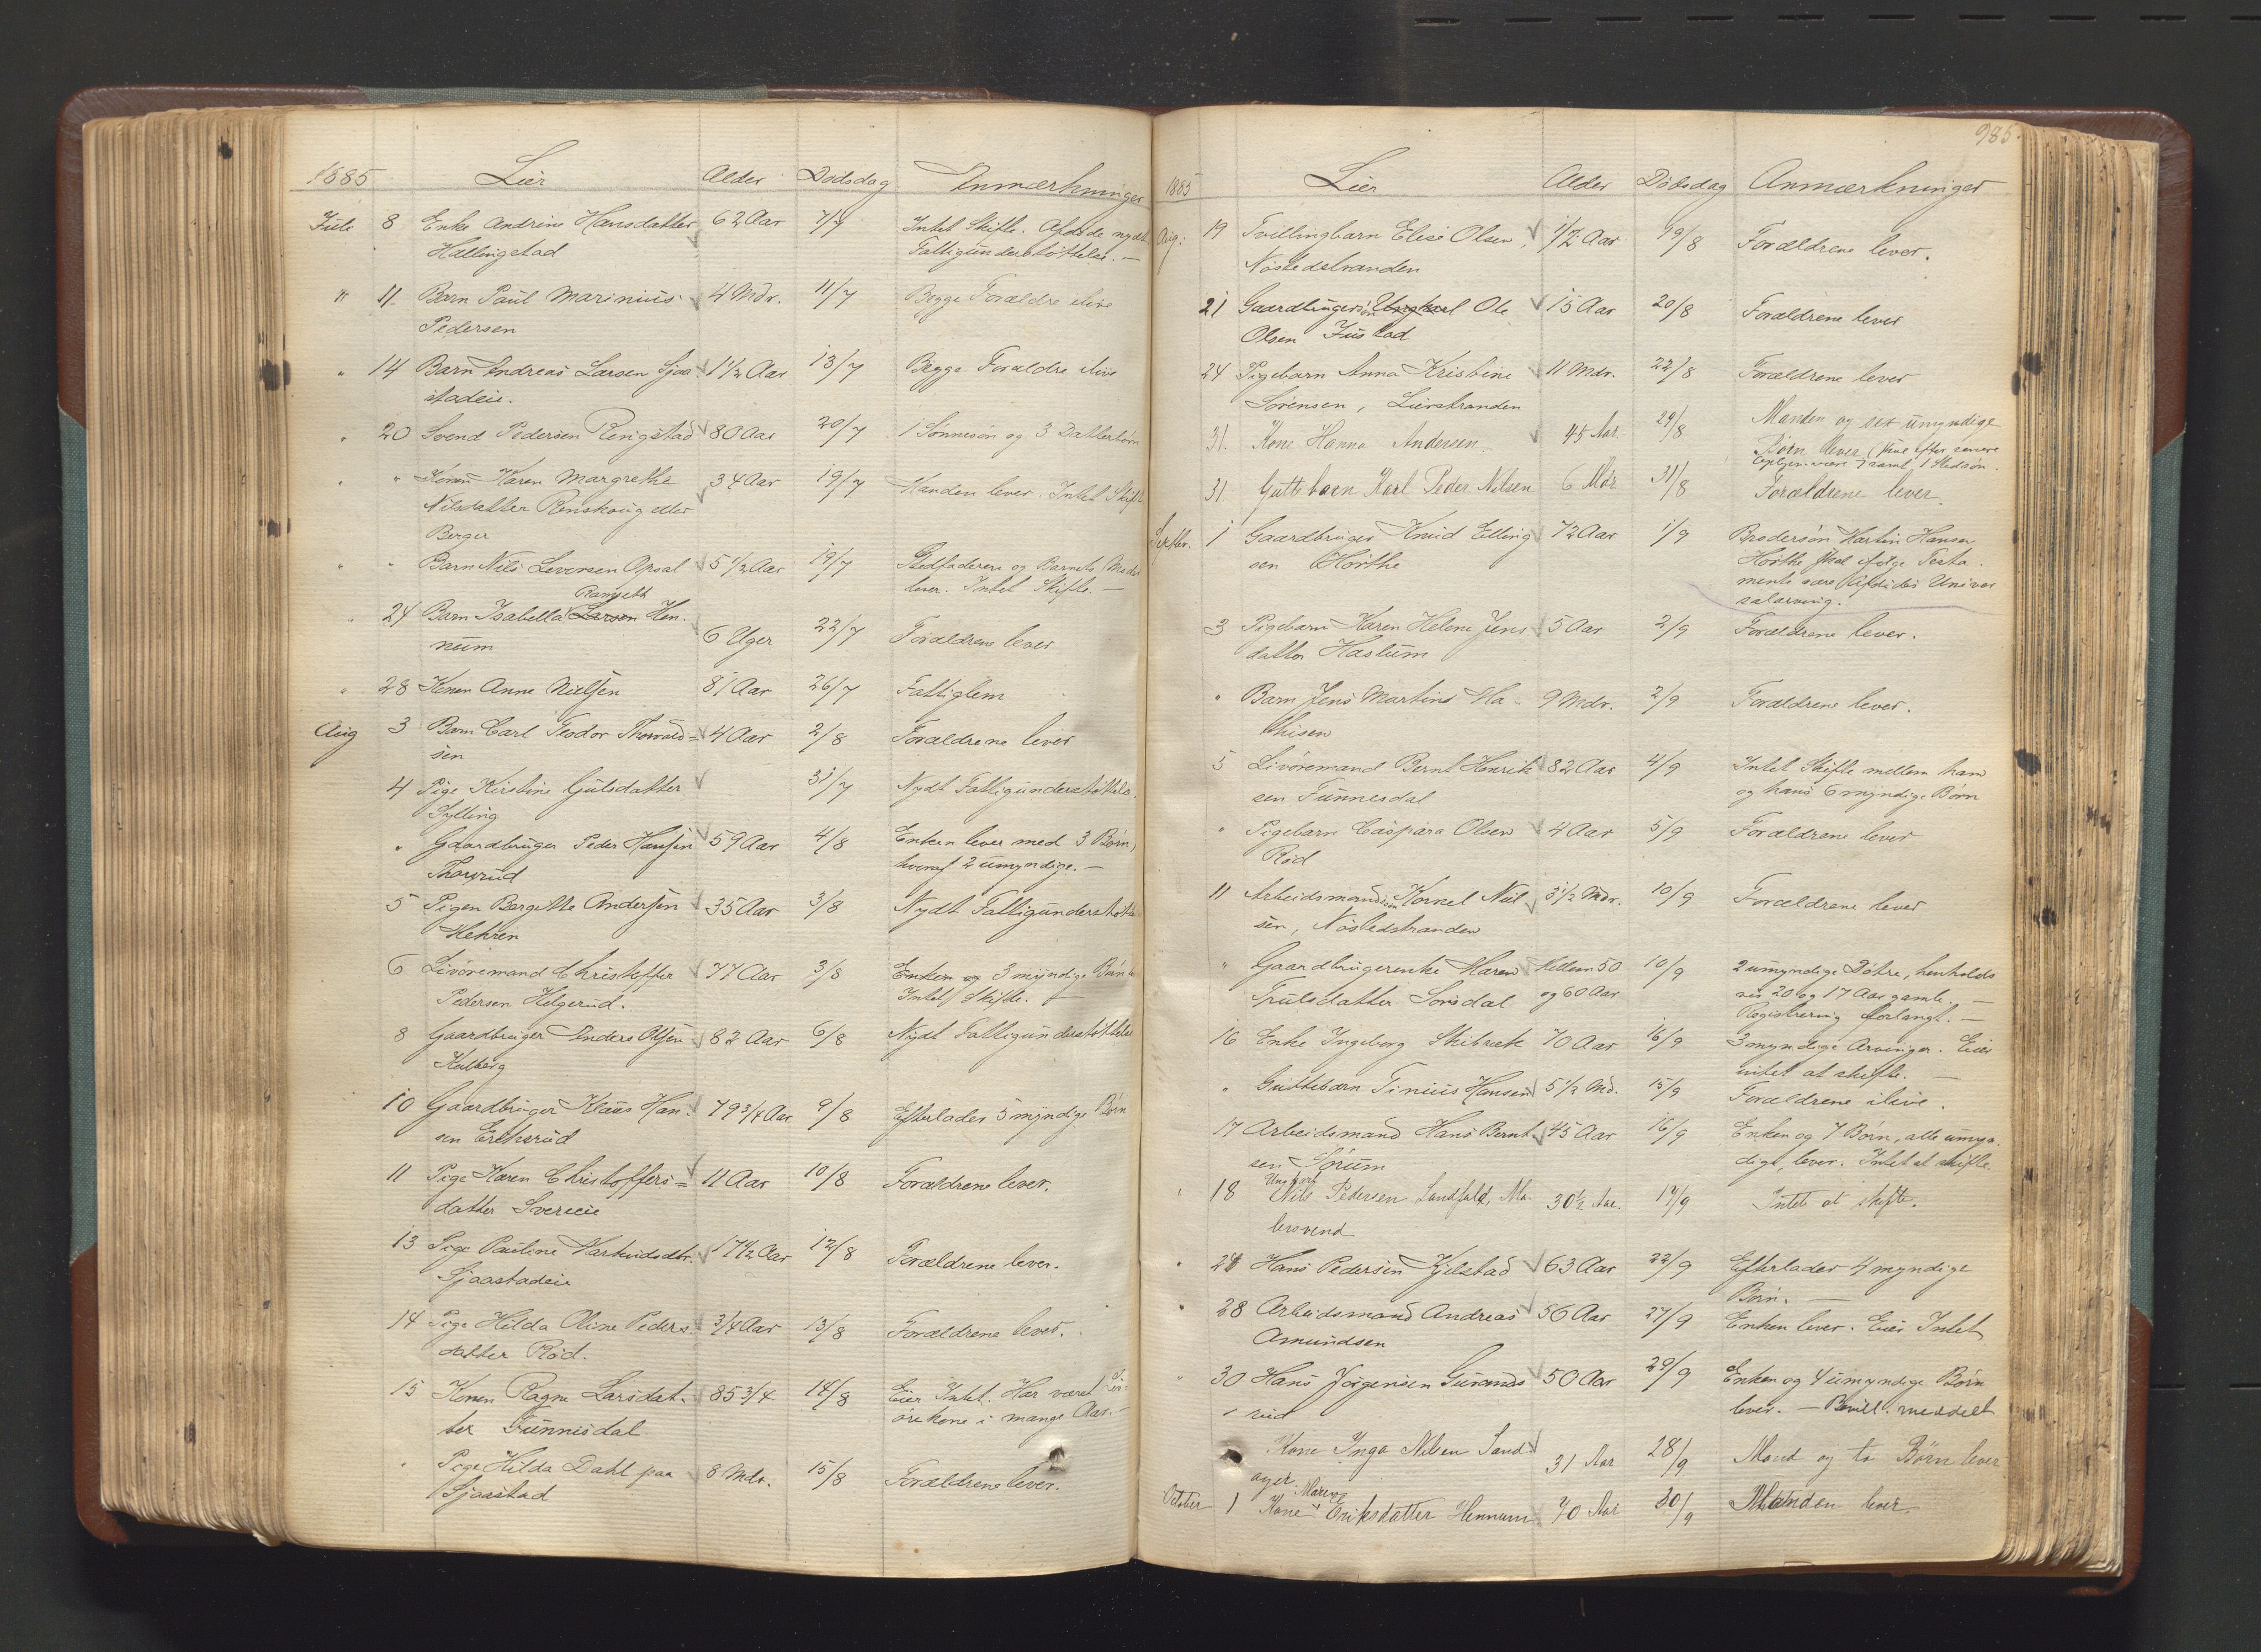 1885 Lier Alder Dødsdag Anmærkninger
Juli 8 Enke Andrine Hansdatter 62 Aar 7/7 Intet Skifte. Afdøde nydt
Hallingstad Fattigunderstøttelse. —
" 11. Barn Paul Marinius 4 Mdr. 11/7 Begge Forældre ilive
Pedersen
" 14 Barn Andreas Larsen Sjaa- 1 1/2 Aar 13/7 Begge Forældre ilive
stadeie.
" 20 Svend Pedersen Renigstad 80 Aar 20/7 1 Sønnesøn og 3 Datterbørn
" " Konen Karen Margrethe 34 Aar 19/7 Manden lever. Intet Skifte
Nilsdatter Renskoug eller
Berger
" " Barn Nils Levorsen Opsal 5 1/2 Aar 19/7 Stedfaderen og Barnets Moder
lever. Intet Skifte. —
Ramseth
" 24 Barn Isabella Larsen Hen- 6 Uger 22/7 Forældrene lever
num
" 28 Konen Anne Nielsen 81 Aar 26/7 Fattiglem
Aug 3 Barn Carl Teodor Thorvald= 4 Aar 2/8 Forældrene lever
sen
4 Pige Kirstine Gulsdatter 31/7 Nydt Fattigunderstøttelse.
Sylling
" Gaardbruger Peder Hansen 59 Aar 4/8 Enken lever med 3 Børn,
Thorsrud hvoraf 2 umyndige. —
5 Pigen Bergitte Andersen 35 Aar 3/8 Nydt Fattigunderstøttelse
Hehren
6 Livøremand Christoffer 77 Aar 3/8 Enken og 3 myndige Børn
Pedersen Helgerud. Intet Skifte. —
8 Gaardbruger Anders Olsen 82 Aar 6/8 Nydt Fattigunderstøttelse
Kulberg
10 Gaardbruger Klaus Han- 79 3/4 Aar 9/8 Efterlader 5 myndige Børn
sen Eriksrud
11 Pige Karen Christoffers= 11 Aar 10/8 Forældrene lever.
datter Svereeie
13 Pige Pauline Narvidsdtr. 17 1/2 Aar 12/8 Forældrene lever.
Sjaastadeie
14 Pige Hilda Oline Peders- 3/4 Aar 13/8 Forældrene lever.
datter Rød.
15 Konen Ragne Larsdat- 85 3/4 14/8 Eier Intet. Har været Liv-
ter Tunnisdal ørekone i mange Aar. —
" Pige Hilda Dahl paa 8 Mdr. 15/8 Forældrene lever.
Sjaastad
985.
1885 Lier Alder Dødsdag Anmærkninger
Aug: 19 Tvillingbarn Elise Olsen, 1/2 Aar 19/8 Forældrene lever.
Nøstedstranden
21 Gaardbrugersøn Ungkarl Ole 15 Aar 20/8 Forældrene lever
Olsen Justad
24 Pigebarn Anna Kristine 11 Mdr. 22/8 Forældrene lever
Sørensen, Lierstranden
31. Kone Hanna Andersen 45 Aar. 29/8 Manden og sex umyndige
Børn lever (skal efter senere
Oplysn. være 7 samt 1 Stedsøn.
31 Guttebarn Karl Peder Nilsen 6 Mdr 31/8 Forældrene lever.
Septbr. 1 Gaardbruger Knud Elling- 72 Aar 1/9 Brodersøn Martin Hansen
sen Hørthe Hørthe skal ifølge Testa-
mente være Afdødes Univer
salarving.
3 Pigebarn Karen Helene Jens- 5 Aar 2/9 Forældrene lever.
datter Haslum
" Barn Jens Martins Ma- 9 Mdr. 2/9 Forældrene lever.
thisen
5 Livøremand Bernt Henrik- 82 Aar 4/9 Intet Skifte mellem ham
sen Tunnesdal og hans 6 myndige Børn
" Pigebarn Caspara Olsen 4 Aar 5/9 Forældrene lever
Rød
11 Arbeidsmandssøn Kornel Niel- 3 1/2 Mdr. 10/9 Forældrene lever
sen, Nøstedstranden
" Gaardbrugerenke Maren Mellem 50 10/9 2 umyndige Døtre, henholds
Trulsdatter Sørsdal og 60 Aar vis 20 og 17 Aar gamle. —
Registrering forlangt. —
16 Enke Ingeborg Skibræk 70 Aar 16/9 3 myndige Arvinger. Eier
intet at skifte. —
" Guttebarn Tinius Hansen 5 1/2 Md. 15/9 Forældrene ilive.
17 Arbeidsmand Hans Bernt- 45 Aar 16/9 Enken og 7 Børn, alle umyn-
sen Sørum dige, lever. Intet at skifte.
Ungkarl
" 18 Nils Pedersen Landfald, Ma- 30 1/2 Aar. 17/9 Intet at skifte.
lersvend
" 28 Hans Pedersen Kjelstad 63 Aar 22/9 Efterlader 4 myndige
Børn. —
" 28 Arbeidsmand Andreas 56 Aar 27/9 Enken lever. Eier Intet
Amundsen
" 30 Hans Jørgensen Gunnds 50 Aar 29/9 Enken og 4 umyndige Børn
rud lever. — Bevill. meddelt
Kone Inga Nilsen Sand- 31 Aar 28/9 Mand og to Børn lever
ager.
Maren
October 1 Kone Eriksdatter Hennum 70 Aar 30/9 Manden lever.